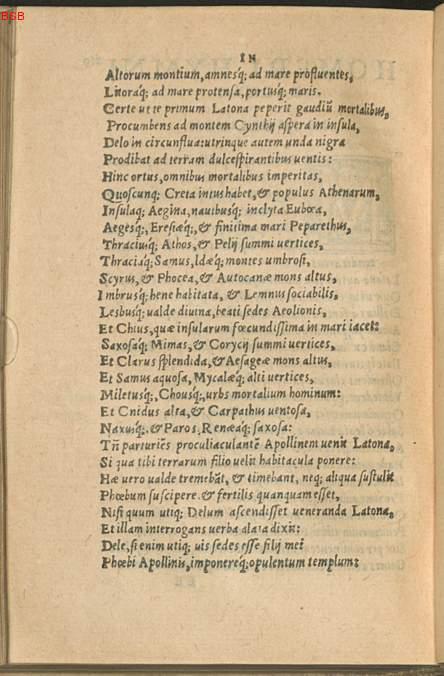 BSB
IN
Altorum montium, amnesq́; ad mare profluentes,
Litoraq́; ad mare protensa, portusq́; maris.
Certe ut te primum Latona peperit gaudiũ mortalibus,
Procumbens ad montem Cynthij aspera in insula,
Delo in circunflua: utrinque autem unda nigra
Prodibat ad terram dulcespirantibus uentis:
Hinc ortus, omnibus mortalibus imperitas,
Quoscunq; Creta intus habet, & populus Athenarum,
Insulaq; Aegina, nauibusq́; inclyta Eubœa,
Aegesq́;, Eresiæq́;, & finitima mari Peparethus,
Thraciusq́; Athos, & Pelij summi uertices,
Thraciaq́; Samus, Idæq́; montes umbrosi,
Scyrus, & Phocea, & Autocanæ mons altus,
Imbrusq́; bene habitata, & Lemnus sociabilis,
Lesbusq́; ualde diuina, beati sedes Aeolionis,
Et Chius, quæ insularum fœcundissima in mari iacet:
Saxosaq́; Mimas, & Corycij summi uertices,
Et Clarus splendida, & Aesageæ mons altus,
Et Samus aquosa, Mycalæq́; alti uertices,
Miletusq́;, Chousq́;, urbs mortalium hominum:
Et Cnidus alta, & Carpathus uentosa,
Naxusq́;, & Paros, Renæaq́; saxosa:
Tñ parturiẽs procul iaculantẽ Apollinem uenit Latona,
Si qua tibi terrarum filio uelit habitacula ponere:
Hæ uero ualde tremebãt, & timebant, neq; aliqua sustulit
Phœbum suscipere. & fertilis quanquam esset,
Nisi quum utiq; Delum ascendisset ueneranda Latona,
Et illam interrogans uerba alata dixit:
Dele, si enim utiq; uis sedes esse filij mei
Phœbi Apollinis, imponereq́; opulentum templum: